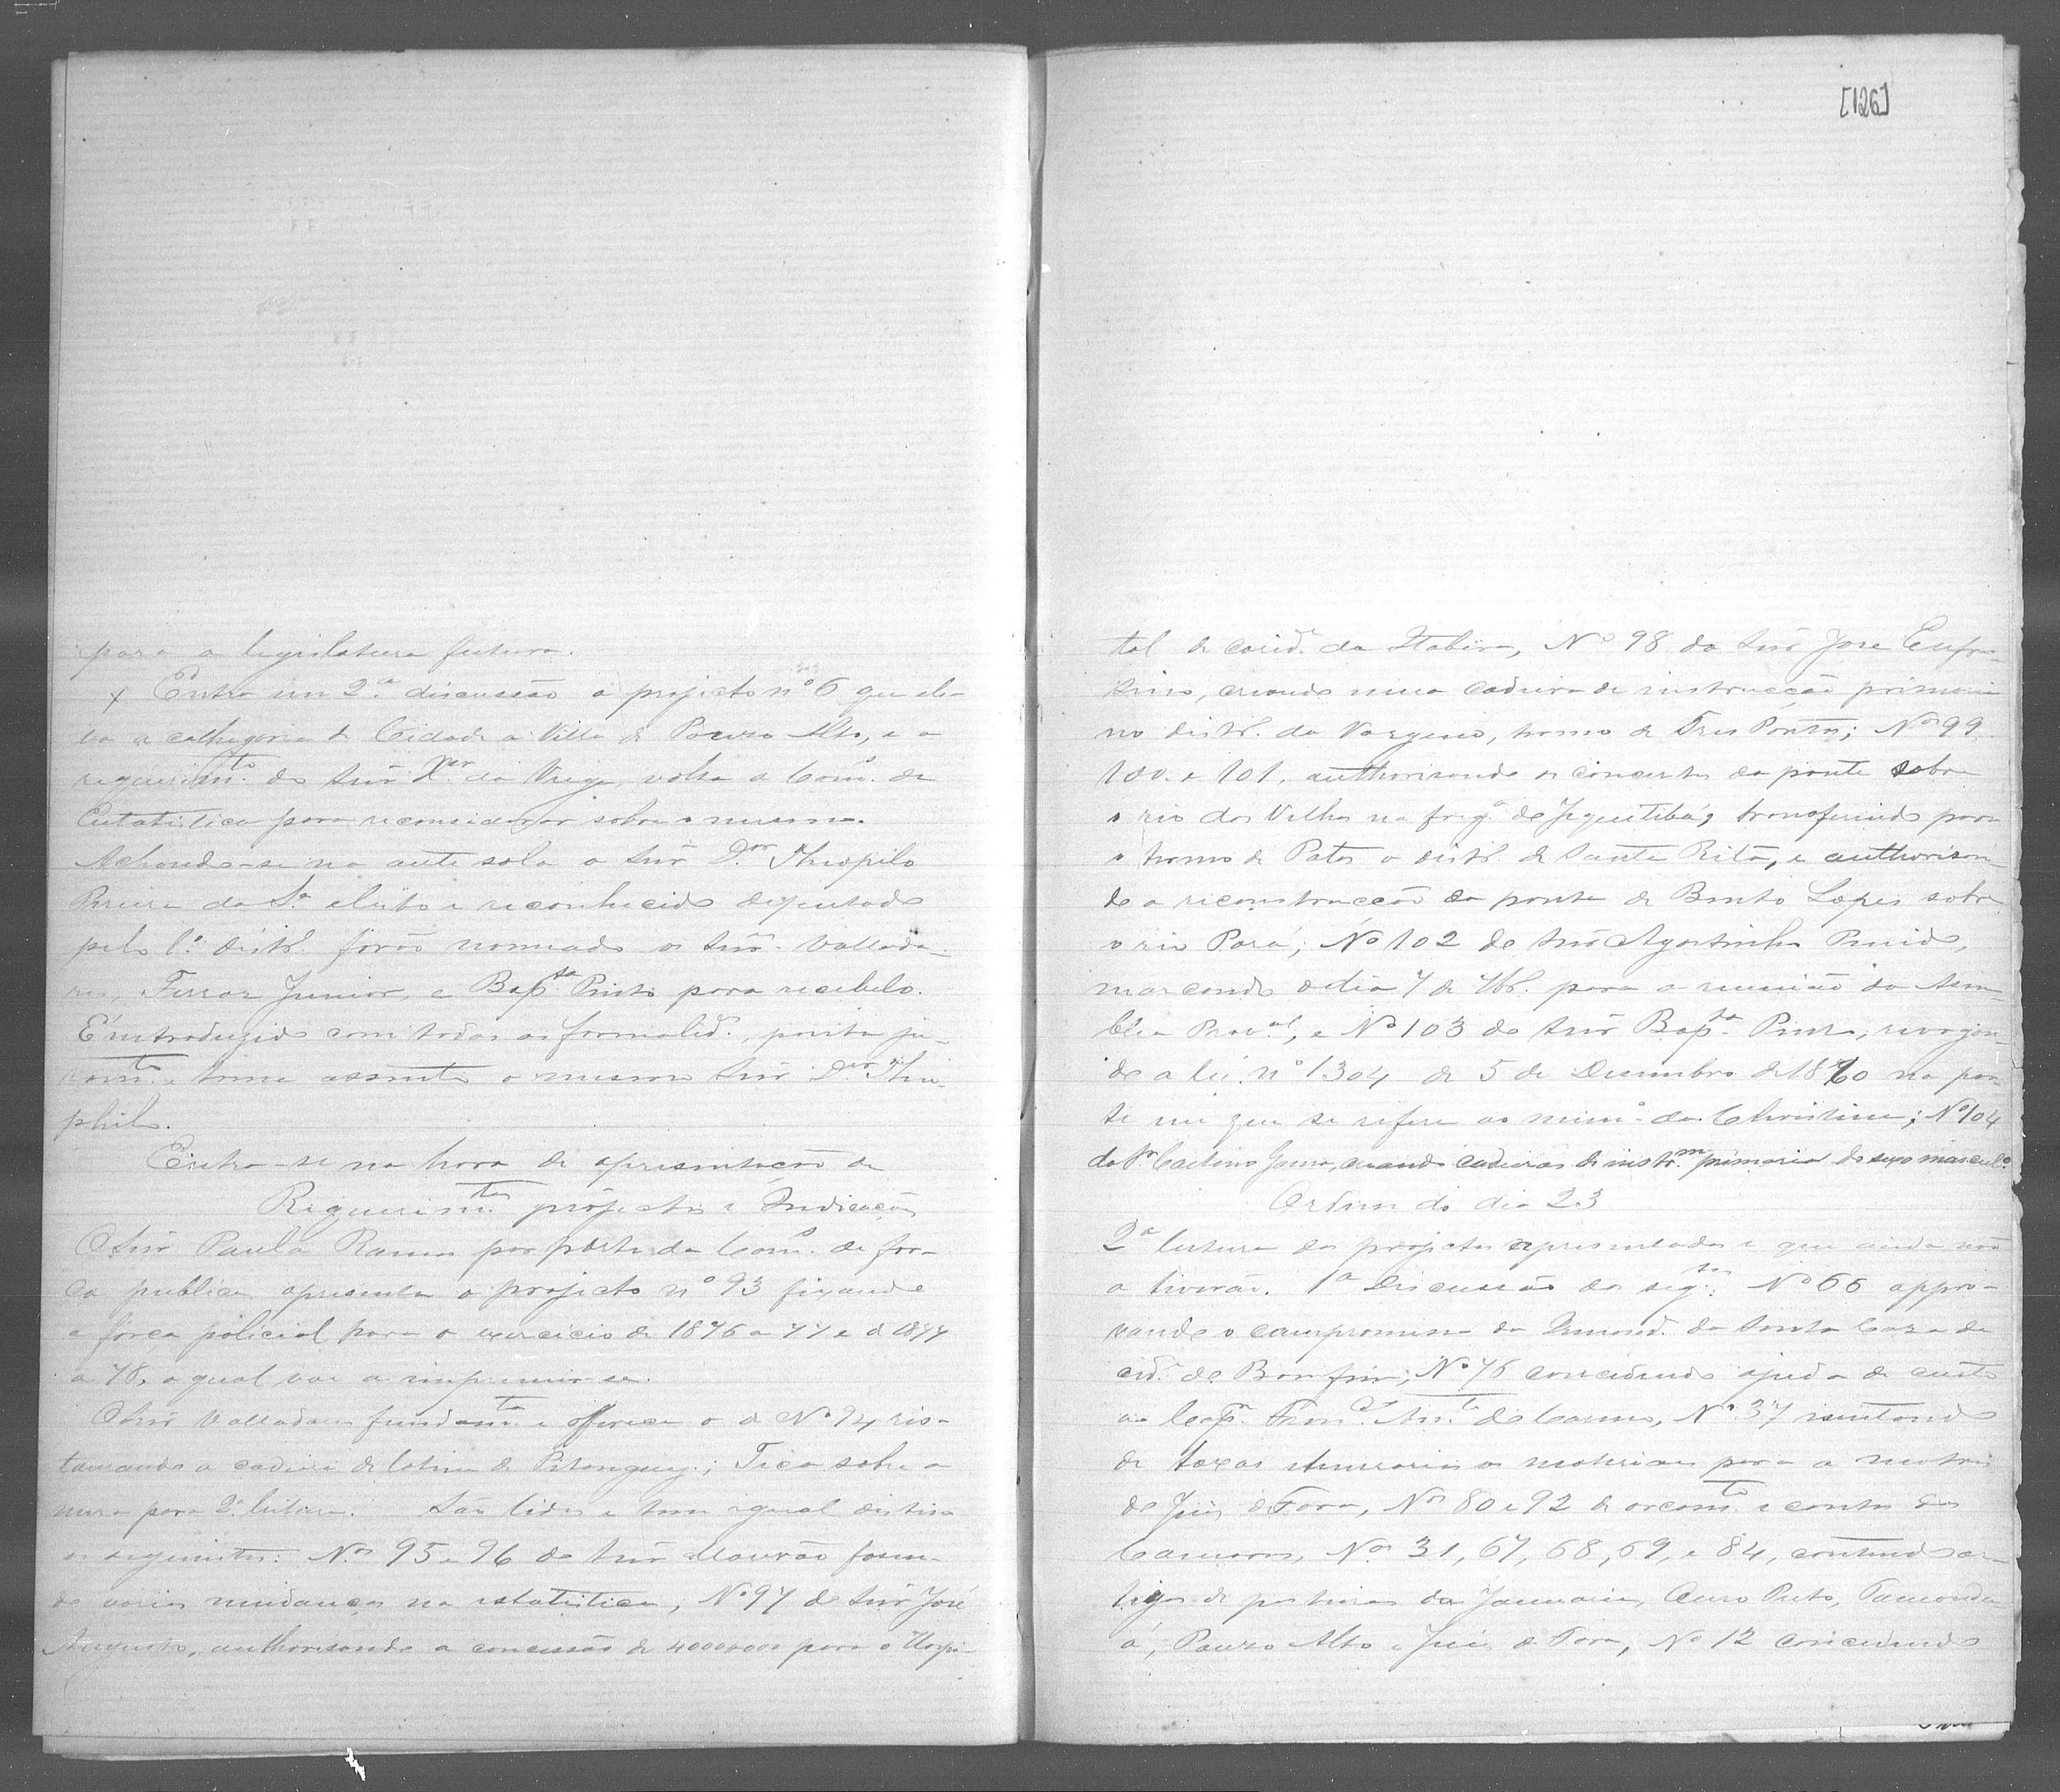 para a legislatura futura.
x Entra em 2.ª discussão o projecto nº 6 que ele-
va a cathegoria de Cidade a Villa de Pouzo Alto, e a
requerim.to do Snr X.er da Veiga, volta a Com.º de
Estatistica para reconsiderar sobre o mesmo.
Achando-se na ante sala o Snr D.or Theopilo
Pereira da S.ª eleito e reconhecido deputado
pelo 1.º distr. forão nomeado os Snr.es Vallada-
res, Ferraz Junior, e Bap.ta Pinto para recebelo.
E' introduzido com todas as formalid.es, presta ju-
ram.to e toma assento o mesmo Snr D.or Theo-
philo.
Entra-se na hora de apresentação de
Requerim.tos projectos e Indicações
O Snr Paula Ramos por parte da Com.º de for-
ça publica apresenta o projecto nº 93 fixando
a força policial para o exercicio de 1876 a 77 e d 1877
a 78, o qual vai a imprimir-se.
O Snr Valladares fundam.ta e offerece o de Nº 94 res-
taurando a cadeira de latim de Pitanguy; Fica sobre a
mesa para 2.ª leitura. São lidos e tem igual destino
os seguintes: N.os 95 e 96 do Snr Mourão fazen-
do varias mudanças na estatistica, Nº 97 do Snr José
Augusto, authorisando a concessão de 4000$000 para o Hospi-
[126]
tal de carid.e da Itabira, Nº 98 do Snr José Eufro-
sino, creando uma Cadeira de instrucção primaria
no distr. da Vargem, termo de Tres Pontas; Nos 99
100. e 101. authorisando os concertos da ponte sobre
o rio das Velhas na freg.ª de Jequitibá, transferindo para
o termo de Patos o distr. de Santa Rita, e authorisan-
do a reconstrucção da ponte de Bento Lopes sobre
o rio Pará; Nº 102 do Snr Agostinho Penido,
marcando o dia 7 de 7br. para a reunião da Assem-
blea Prov.al, e Nº 103 do Snr Bap.ta Pinto, revogan-
do a lei nº 1304 de 5 de Dezembro de 1860 na par-
te em que se refere ao mun.º da Christina; Nº 104
do Sr Caetano Gama, creando cadeiras de instr.m primaria do sexo mascul.º
Ordem do dia 23
2ª leitura dos projectos apresentados e que ainda não
a tiverão. 1ª Discussão dos seg.tes: Nº 66 appro-
vando o compromisso da Irmand.e da Santa Caza da
cid.e de Bomfim; Nº 76 concedendo ajuda de custo
ao Cap.m Fran.co An.to do Carmo, Nº 37 isentando
de taxas itinerarias os materiaes para a matriz
de Juiz de Fora, Nos 80 e 92 de orcam.to e contas das
Camaras, Nos 31, 67, 68, 69, e 84, contendo ar-
tigos de posturas da Januaria, Ouro Preto, Tamandu-
á, Pouzo Alto e Juiz de Fora, Nº 12 concedendo